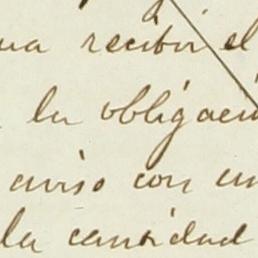 recibir el
la obligaci
aviso con un
la cantidad